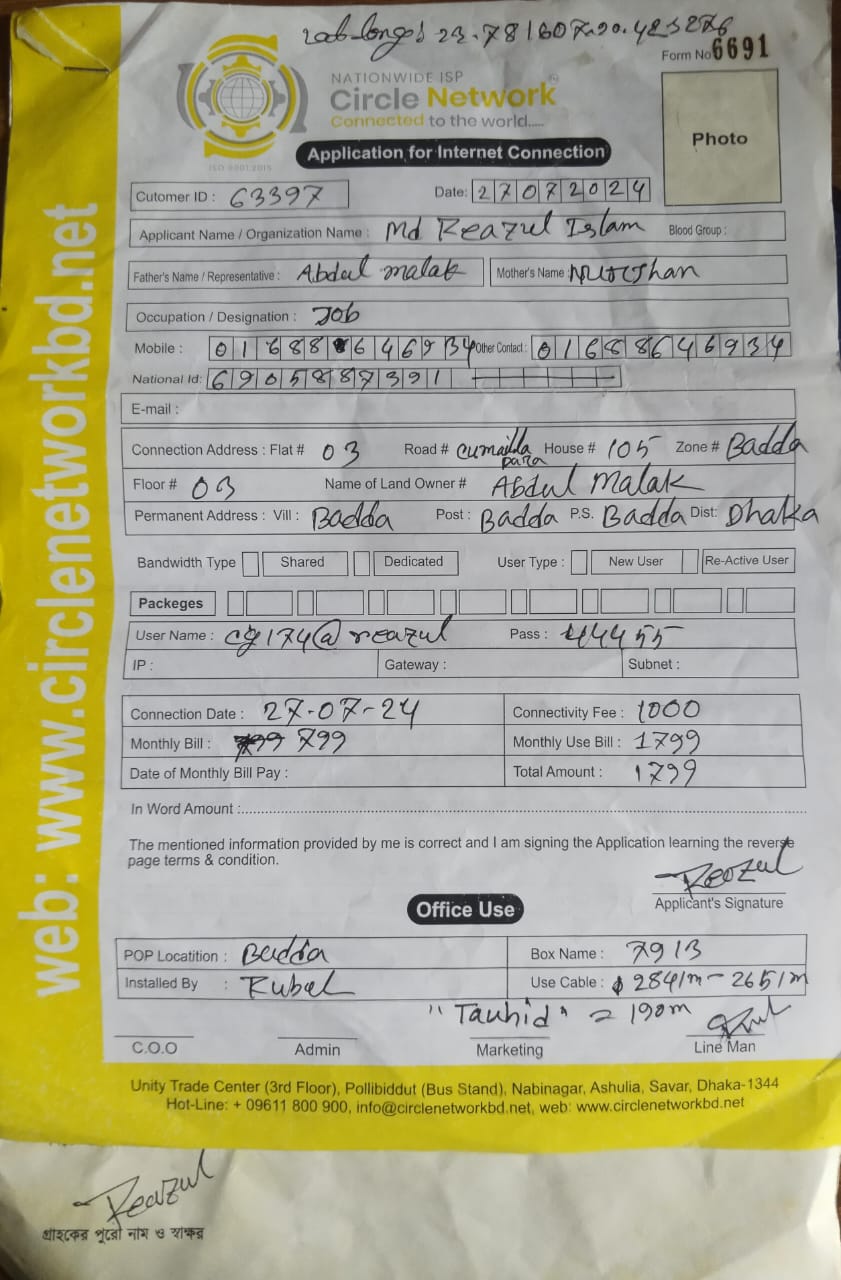 23.781607,90.423276
Form No 6691
NATIONWIDE ISP
Circle Network
Connected to the world.....
ISO 9001:2015
Photo
Application for Internet Connection
Cutomer ID : 63397 Date: 27072024
Applicant Name / Organization Name : Md Reazul Islam Blood Group :
Father's Name / Representative : Abdul malak Mother's Name :
Occupation / Designation : Job
Mobile : Other Contact : 01688646934
National Id: 6905887391
E-mail :
Connection Address : Flat # 03 Road # Cumailla para House # 105 Zone # Badda
Floor # 03 Name of Land Owner # Abdul Malak
Permanent Address : Vill : Badda Post : Badda P.S. Badda Dist: Dhaka
Bandwidth Type Shared Dedicated User Type : New User Re-Active User
Packeges
User Name : @reazul Pass : 44455
IP : Gateway : Subnet :
Connection Date : 27-07-24 Connectivity Fee : 1000
Monthly Bill : 799 Monthly Use Bill : 1799
Date of Monthly Bill Pay : Total Amount : 1799
In Word Amount :
The mentioned information provided by me is correct and I am signing the Application learning the reverse
page terms & condition.
Reazul
Applicant's Signature
Office Use
POP Locatition : Badda Box Name : 7913
Installed By : Rubel Use Cable : 284/m - 265/m
"Tauhid" = 190m
C.O.O Admin Marketing Line Man
Unity Trade Center (3rd Floor), Pollibiddut (Bus Stand), Nabinagar, Ashulia, Savar, Dhaka-1344
Hot-Line: + 09611 800 900, info@circlenetworkbd.net, web: www.circlenetworkbd.net
web: www.circlenetworkbd.net
Reazul
গ্রাহকের পুরো নাম ও স্বাক্ষর